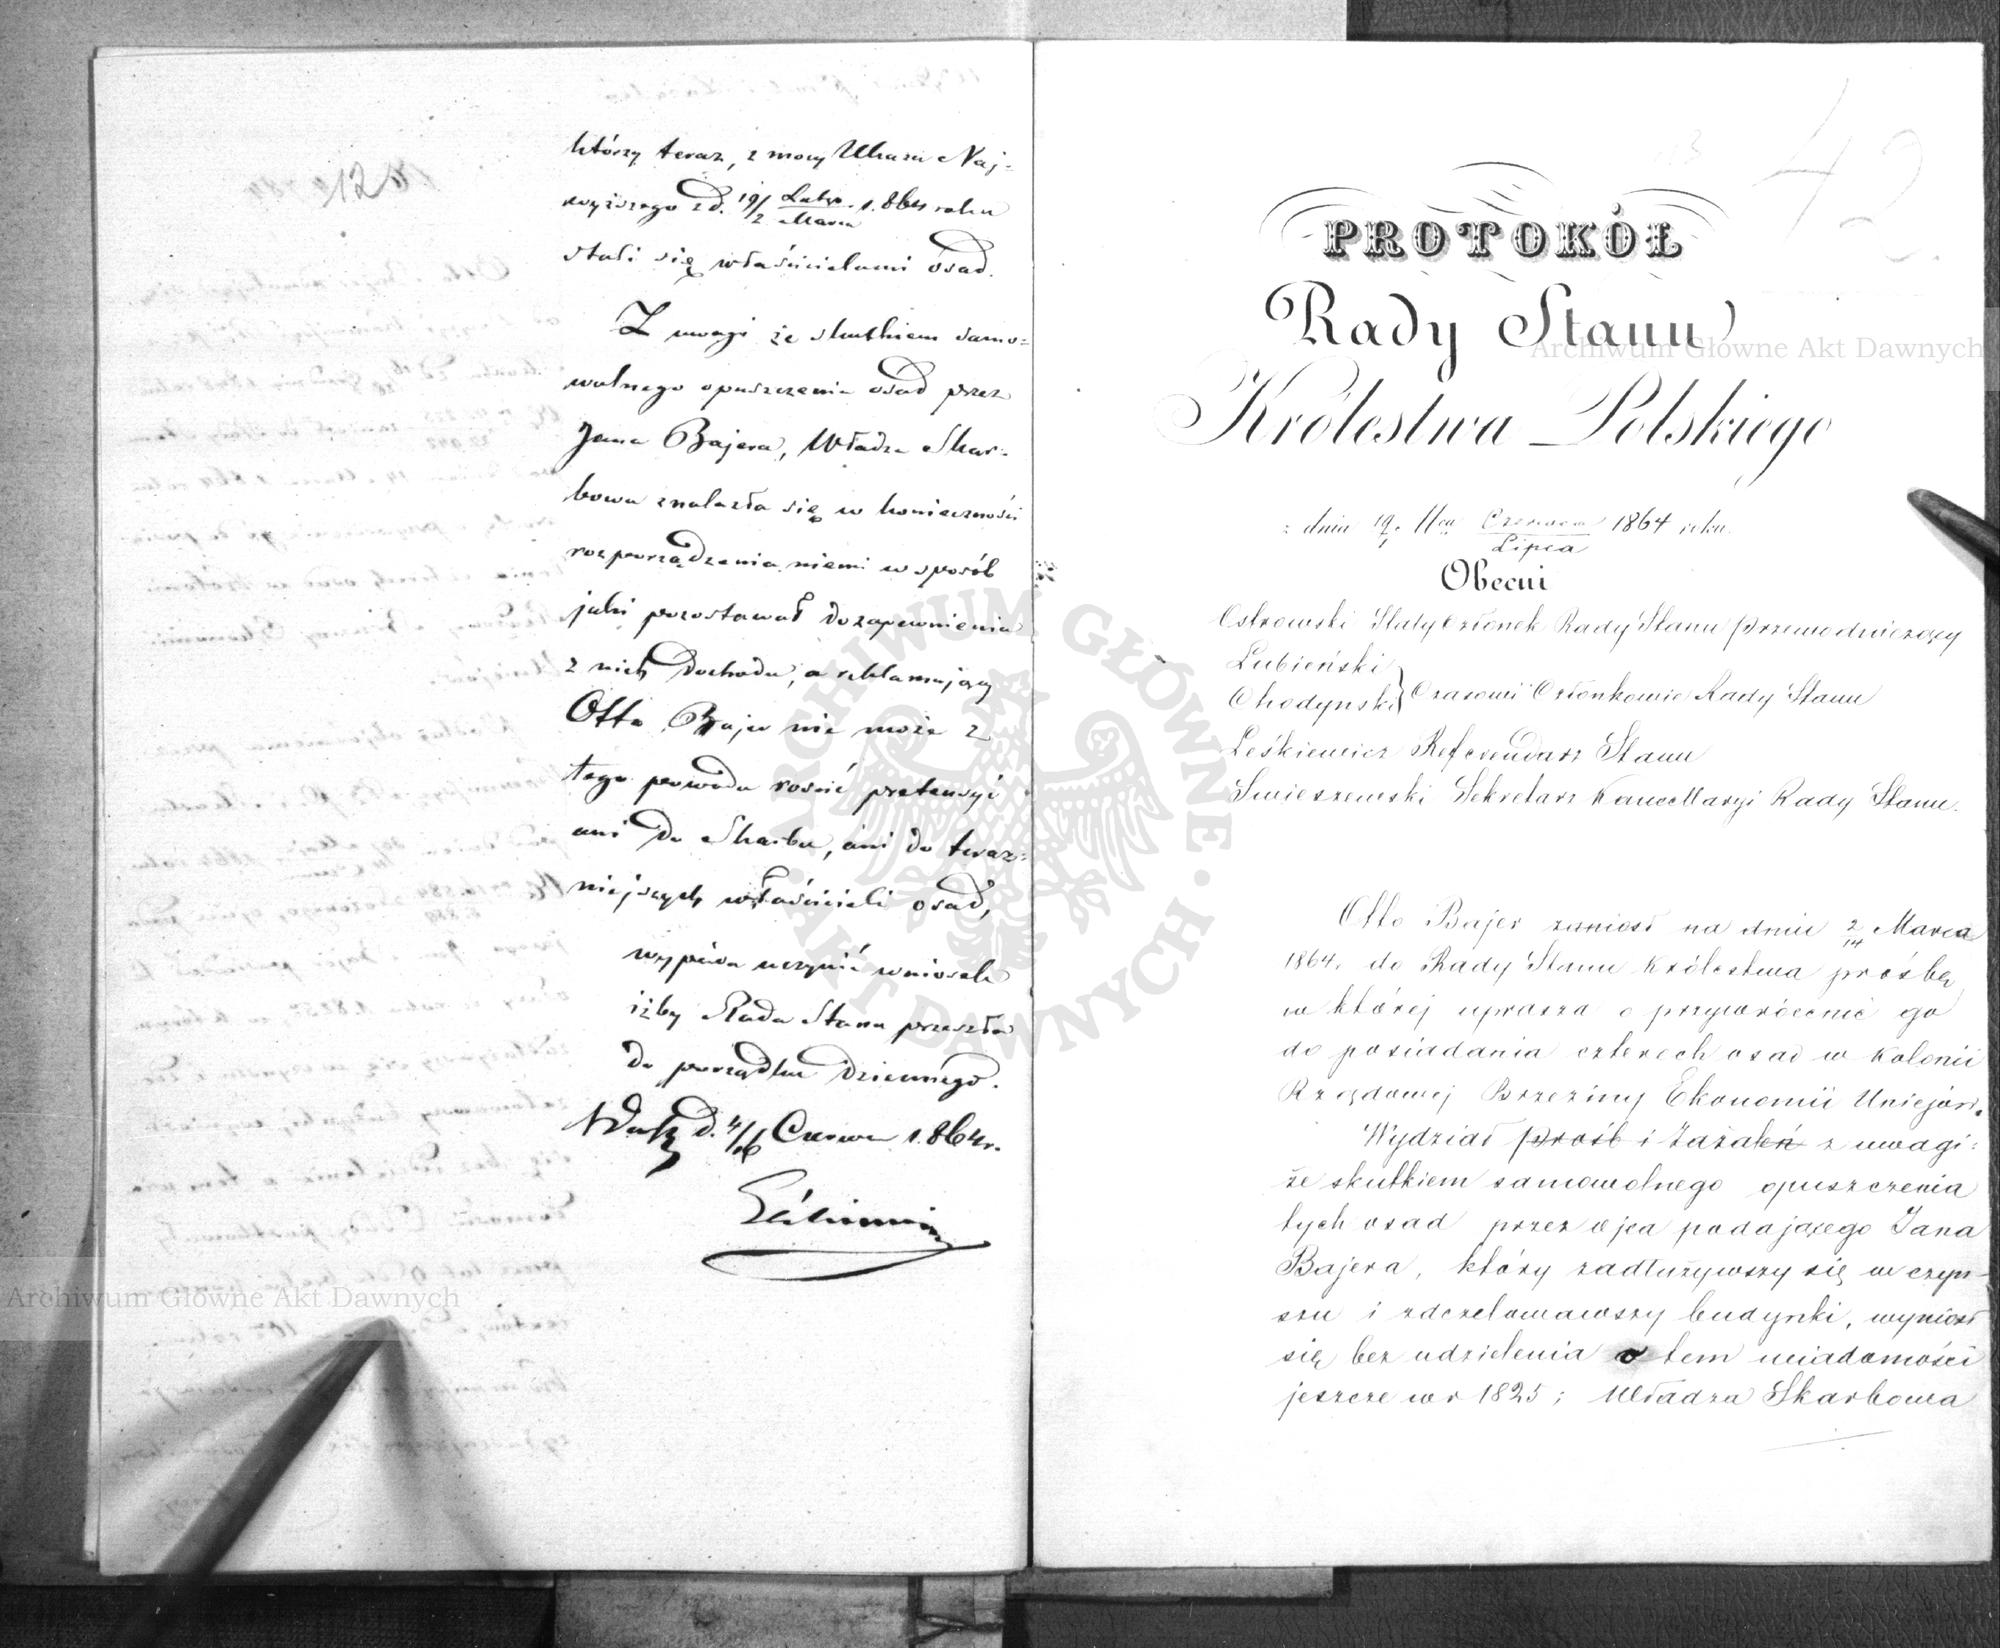 którzy teraz, z mocy Ukazu Naj-
wyższego z d. 19/2 Lutego/Marca 1.864 roku
stali się właścicielami osad.
Z uwagi że skutkiem samo=
wolnego opuszczenia osad przez
Jana Bajera, Władza Skar-
bowa znalazła się w konieczności
rozporządzenia niemi w sposób
jaki pozostawał do zapewnienia
z nich dochodu, a reklamujący
Otto Bajer nie może z
tego powodu rościć pretensyi
ani do Skarbu, ani do teraz-
niejszych właścicieli osad,
wypada uczynić wniosek
iżby Rada Stanu przeszła
do porządku dziennego.
d. 4/16 Czerwca 1.864 r.
PROTOKÓŁ
Rady Stanu
Królestwa Polskiego
z dnia 19/1 Mca Czerwca/Lipca 1864 roku.
Obecni
Ostrowski Stały Członek Rady Stanu Przewodniczący
Lubieński
Chodyński } Czasowi Członkowie Rady Stanu
Leśkiewicz Referendarz Stanu
Swieszewski Sekretarz Kancellaryi Rady Stanu.
Otto Bajer zaniosł na dniu 2/14 Marca
1864 r. do Rady Stanu Królestwa prośbę
w której uprasza o przywrócenie go
do posiadania czterech osad w Kolonii
Rządowej Brzeziny Ekonomii Uniejów.
Wydział Próśb i Zażaleń z uwagi:
że skutkiem samowolnego opuszczenia
tych osad przez ojca podającego Jana
Bajera, który zadłużywszy się w czyn-
szu i zdezelowawszy budynki, wyniosł
się bez udzielenia o tem wiadomości
jeszcze w r 1825; Władza Skarbowa
Archiwum Główne Akt Dawnych
ARCHIWUM GŁÓWNE AKT DAWNYCH
Archiwum Główne Akt Dawnych